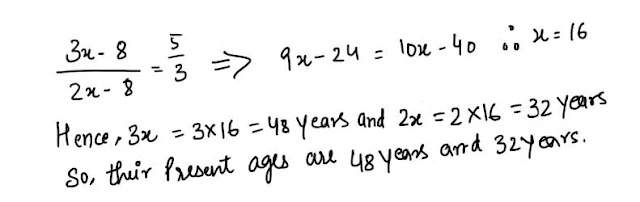 3x - 8 / 2x - 8 = 5/3 ⇒ 9x - 24 = 10x - 40 ∴ x = 16
Hence, 3x = 3×16 = 48 years and 2x = 2×16 = 32 years
So, their Present ages are 48 years and 32 years.